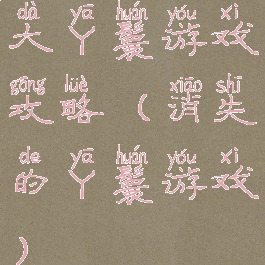 dà yā huán yóu xì
大丫鬟游戏
gōng lüè xiāo shī
攻略(消失
de yā huán yóu xì
的丫鬟游戏
)